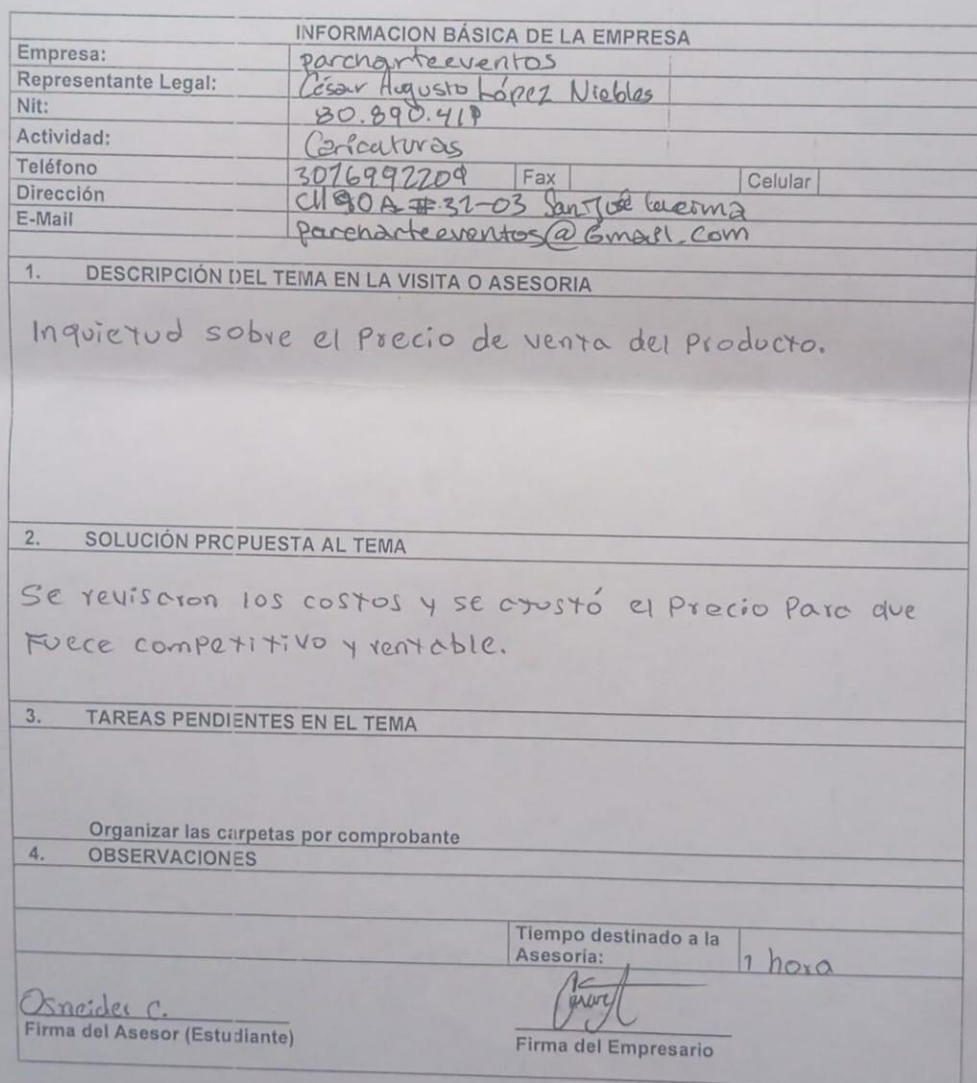 INFORMACION BÁSICA DE LA EMPRESA
Empresa: parcharteeventos
Representante Legal: César Augusto López Niebles
Nit: 80.890.419
Actividad: Caricaturas
Teléfono 3016992209 Fax Celular
Dirección Cll 90A # 32-03 San José
E-Mail parcharteeventos@Gmail.com
1. DESCRIPCIÓN DEL TEMA EN LA VISITA O ASESORIA
Inquietud sobre el Precio de venta del Producto.
2. SOLUCIÓN PROPUESTA AL TEMA
Se revisaron los costos y se ajustó el Precio Para que
Fuece competitivo y rentable.
3. TAREAS PENDIENTES EN EL TEMA
Organizar las carpetas por comprobante
4. OBSERVACIONES
Tiempo destinado a la
Asesoría: 1 hora
Osneider C.
Firma del Asesor (Estudiante)
Firma del Empresario